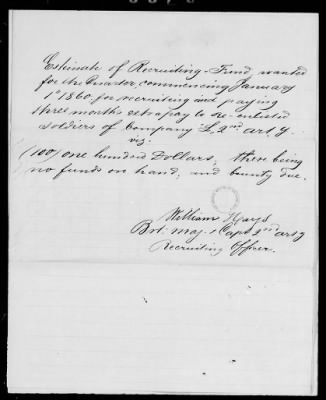 Estimate of Recruiting-Fund, wanted
for the Quarter, commencing January
1st 1860. for recruiting and paying
three months extra pay to re-enlisted
Soldiers of Company 2nd arty.
viz.
(100) one hundred Dollars, there being
no funds on hand, and bounty due.
William Hays
Bvt. Maj. & Capt 2nd arty
Recruiting Officer.